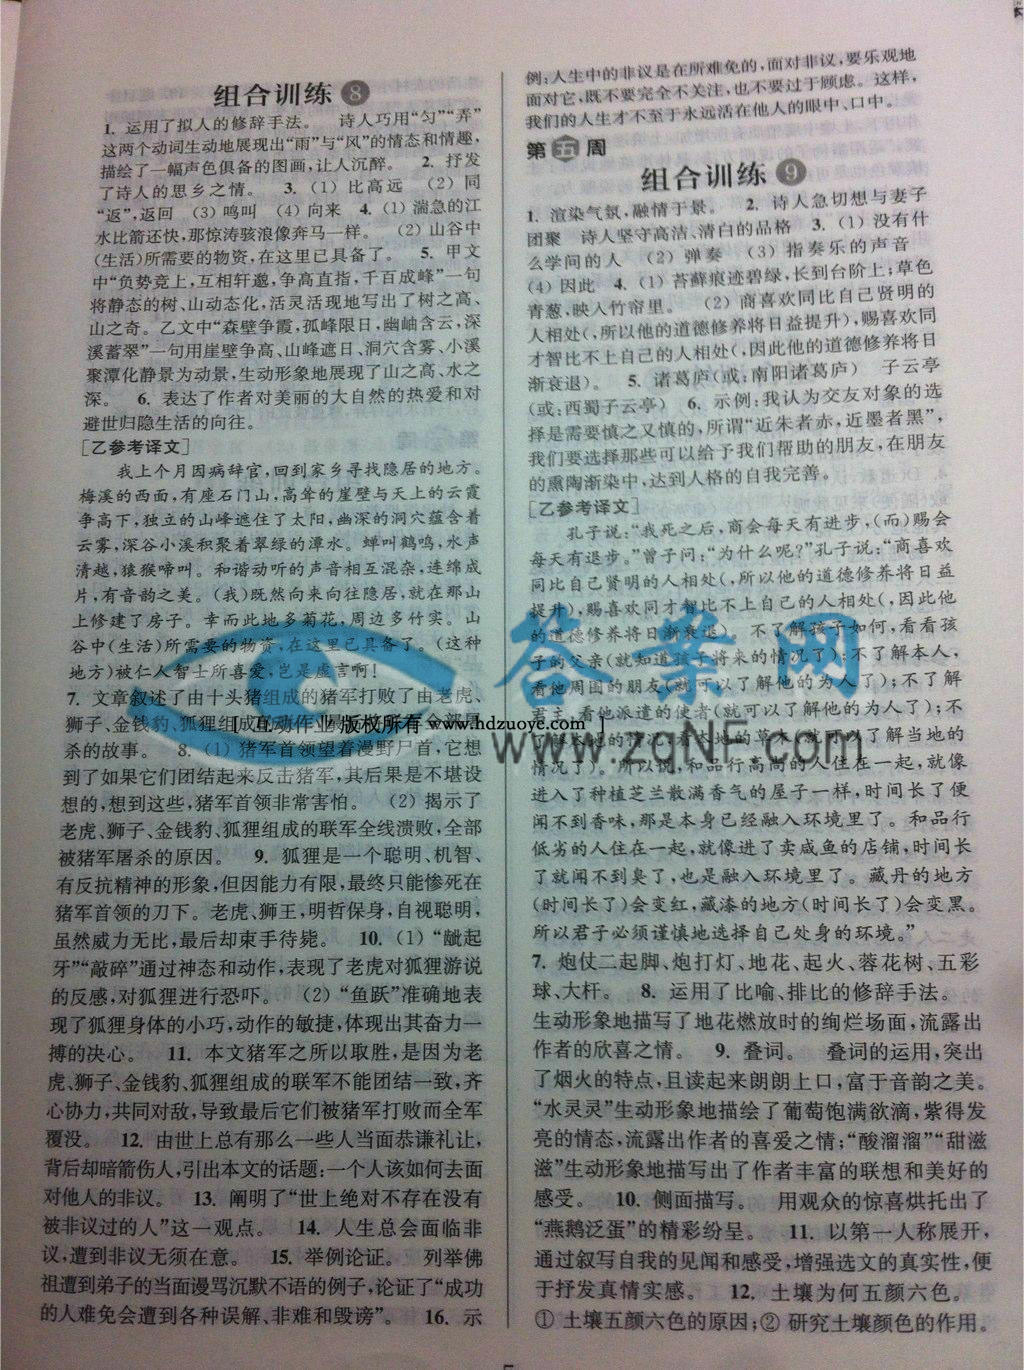 组合训练 8
1. 运用了拟人的修辞手法。 诗人巧用“匀”“弄”
这两个动词生动地展现出“雨”与“风”的情态和情趣,
描绘了一幅声色俱备的图画,让人沉醉。 2. 抒发
了诗人的思乡之情。 3. (1) 比高远 (2) 同
“返”,返回 (3) 鸣叫 (4) 向来 4. (1) 湍急的江
水比箭还快,那惊涛骇浪像奔马一样。 (2) 山谷中
(生活)所需要的物资,在这里已具备了。 5. 甲文
中“负势竞上,互相轩邈,争高直指,千百成峰”一句
将静态的树、山动态化,活灵活现地写出了树之高、
山之奇。乙文中“森壁争霞,孤峰限日,幽岫含云,深
溪蓄翠”一句用崖壁争高、山峰遮日、洞穴含雾、小溪
聚潭化静景为动景,生动形象地展现了山之高、水之
深。 6. 表达了作者对美丽的大自然的热爱和对
避世归隐生活的向往。
[乙参考译文]
我上个月因病辞官,回到家乡寻找隐居的地方。
梅溪的西面,有座石门山,高耸的崖壁与天上的云霞
争高下,独立的山峰遮住了太阳,幽深的洞穴蕴含着
云雾,深谷小溪积聚着翠绿的潭水。蝉叫鹤鸣,水声
清越,猿猴啼叫。和谐动听的声音相互混杂,连绵成
片,有音韵之美。(我)既然向来向往隐居,就在那山
上修建了房子。幸而此地多菊花,周边多竹实。山
谷中(生活)所需要的物资,在这里已具备了。(这种
地方)被仁人智士所喜爱,岂是虚言啊!
7. 文章叙述了由十头猪组成的猪军打败了由老虎、
狮子、金钱豹、狐狸组成的
杀的故事。 8. (1) 猪军首领望着漫野尸首,它想
到了如果它们团结起来反击猪军,其后果是不堪设
想的,想到这些,猪军首领非常害怕。 (2) 揭示了
老虎、狮子、金钱豹、狐狸组成的联军全线溃败,全部
被猪军屠杀的原因。 9. 狐狸是一个聪明、机智、
有反抗精神的形象,但因能力有限,最终只能惨死在
猪军首领的刀下。老虎、狮王,明哲保身,自视聪明,
虽然威力无比,最后却束手待毙。 10. (1) “龇起
牙”“敲碎”通过神态和动作,表现了老虎对狐狸游说
的反感,对狐狸进行恐吓。 (2) “鱼跃”准确地表
现了狐狸身体的小巧,动作的敏捷,体现出其奋力一
搏的决心。 11. 本文猪军之所以取胜,是因为老
虎、狮子、金钱豹、狐狸组成的联军不能团结一致,齐
心协力,共同对敌,导致最后它们被猪军打败而全军
覆没。 12. 由世上总有那么一些人当面恭谦礼让,
背后却暗箭伤人,引出本文的话题:一个人该如何去面
对他人的非议。 13. 阐明了“世上绝对不存在没有
被非议过的人”这一观点。 14. 人生总会面临非
议,遭到非议无须在意。 15. 举例论证。 列举佛
祖遭到弟子的当面谩骂沉默不语的例子,论证了“成功
的人难免会遭到各种误解、非难和毁谤”。 16. 示
例:人生中的非议是在所难免的,面对非议,要乐观地
面对它,既不要完全不关注,也不要过于顾虑。这样,
我们的人生才不至于永远活在他人的眼中、口中。
第五周
组合训练 9
1. 渲染气氛,融情于景。 2. 诗人急切想与妻子
团聚 诗人坚守高洁、清白的品格 3. (1) 没有什
么学问的人 (2) 弹奏 (3) 指奏乐的声音
(4) 因此 4. (1) 苔藓痕迹碧绿,长到台阶上;草色
青葱,映入竹帘里。 (2) 商喜欢同比自己贤明的
人相处(,所以他的道德修养将日益提升),赐喜欢同
才智比不上自己的人相处(,因此他的道德修养将日
渐衰退)。 5. 诸葛庐(或:南阳诸葛庐) 子云亭
(或:西蜀子云亭) 6. 示例:我认为交友对象的选
择是需要慎之又慎的,所谓“近朱者赤,近墨者黑”,
我们要选择那些可以给予我们帮助的朋友,在朋友
的熏陶渐染中,达到人格的自我完善。
[乙参考译文]
孔子说:“我死之后,商会每天有进步,(而)赐会
每天有退步。”曾子问:“为什么呢?”孔子说:“商喜欢
同比自己贤明的人相处(,所以他的道德修养将日益
提升),赐喜欢同才智比不上自己的人相处(,因此他
的道德修养将日渐衰退)。不了解孩子如何,看看孩
子的父亲(就知道孩子将来的情况了);不了解本人,
看他周围的朋友(就可以了解他的为人了);不了解
君主,看他派遣的使者(就可以了解他的为人了);不
以了解当地的
情况了)。所以说,和品行高尚的人住在一起,就像
进入了种植芝兰散满香气的屋子一样,时间长了便
闻不到香味,那是本身已经融入环境里了。和品行
低劣的人住在一起,就像进了卖咸鱼的店铺,时间长
了就闻不到臭了,也是融入环境里了。藏丹的地方
(时间长了)会变红,藏漆的地方(时间长了)会变黑。
所以君子必须谨慎地选择自己处身的环境。”
7. 炮仗二起脚、炮打灯、地花、起火、蓉花树、五彩
球、大杆。 8. 运用了比喻、排比的修辞手法。
生动形象地描写了地花燃放时的绚烂场面,流露出
作者的欣喜之情。 9. 叠词。 叠词的运用,突出
了烟火的特点,且读起来朗朗上口,富于音韵之美。
“水灵灵”生动形象地描绘了葡萄饱满欲滴,紫得发
亮的情态,流露出作者的喜爱之情;“酸溜溜”“甜滋
滋”生动形象地描写出了作者丰富的联想和美好的
感受。 10. 侧面描写。 用观众的惊喜烘托出了
“燕鹅泛蛋”的精彩纷呈。 11. 以第一人称展开,
通过叙写自我的见闻和感受,增强选文的真实性,便
于抒发真情实感。 12. 土壤为何五颜六色。
① 土壤五颜六色的原因;② 研究土壤颜色的作用。
答案网
www.zqNF.com
[ 互动作业 版权所有 www.hdzuoye.com ]